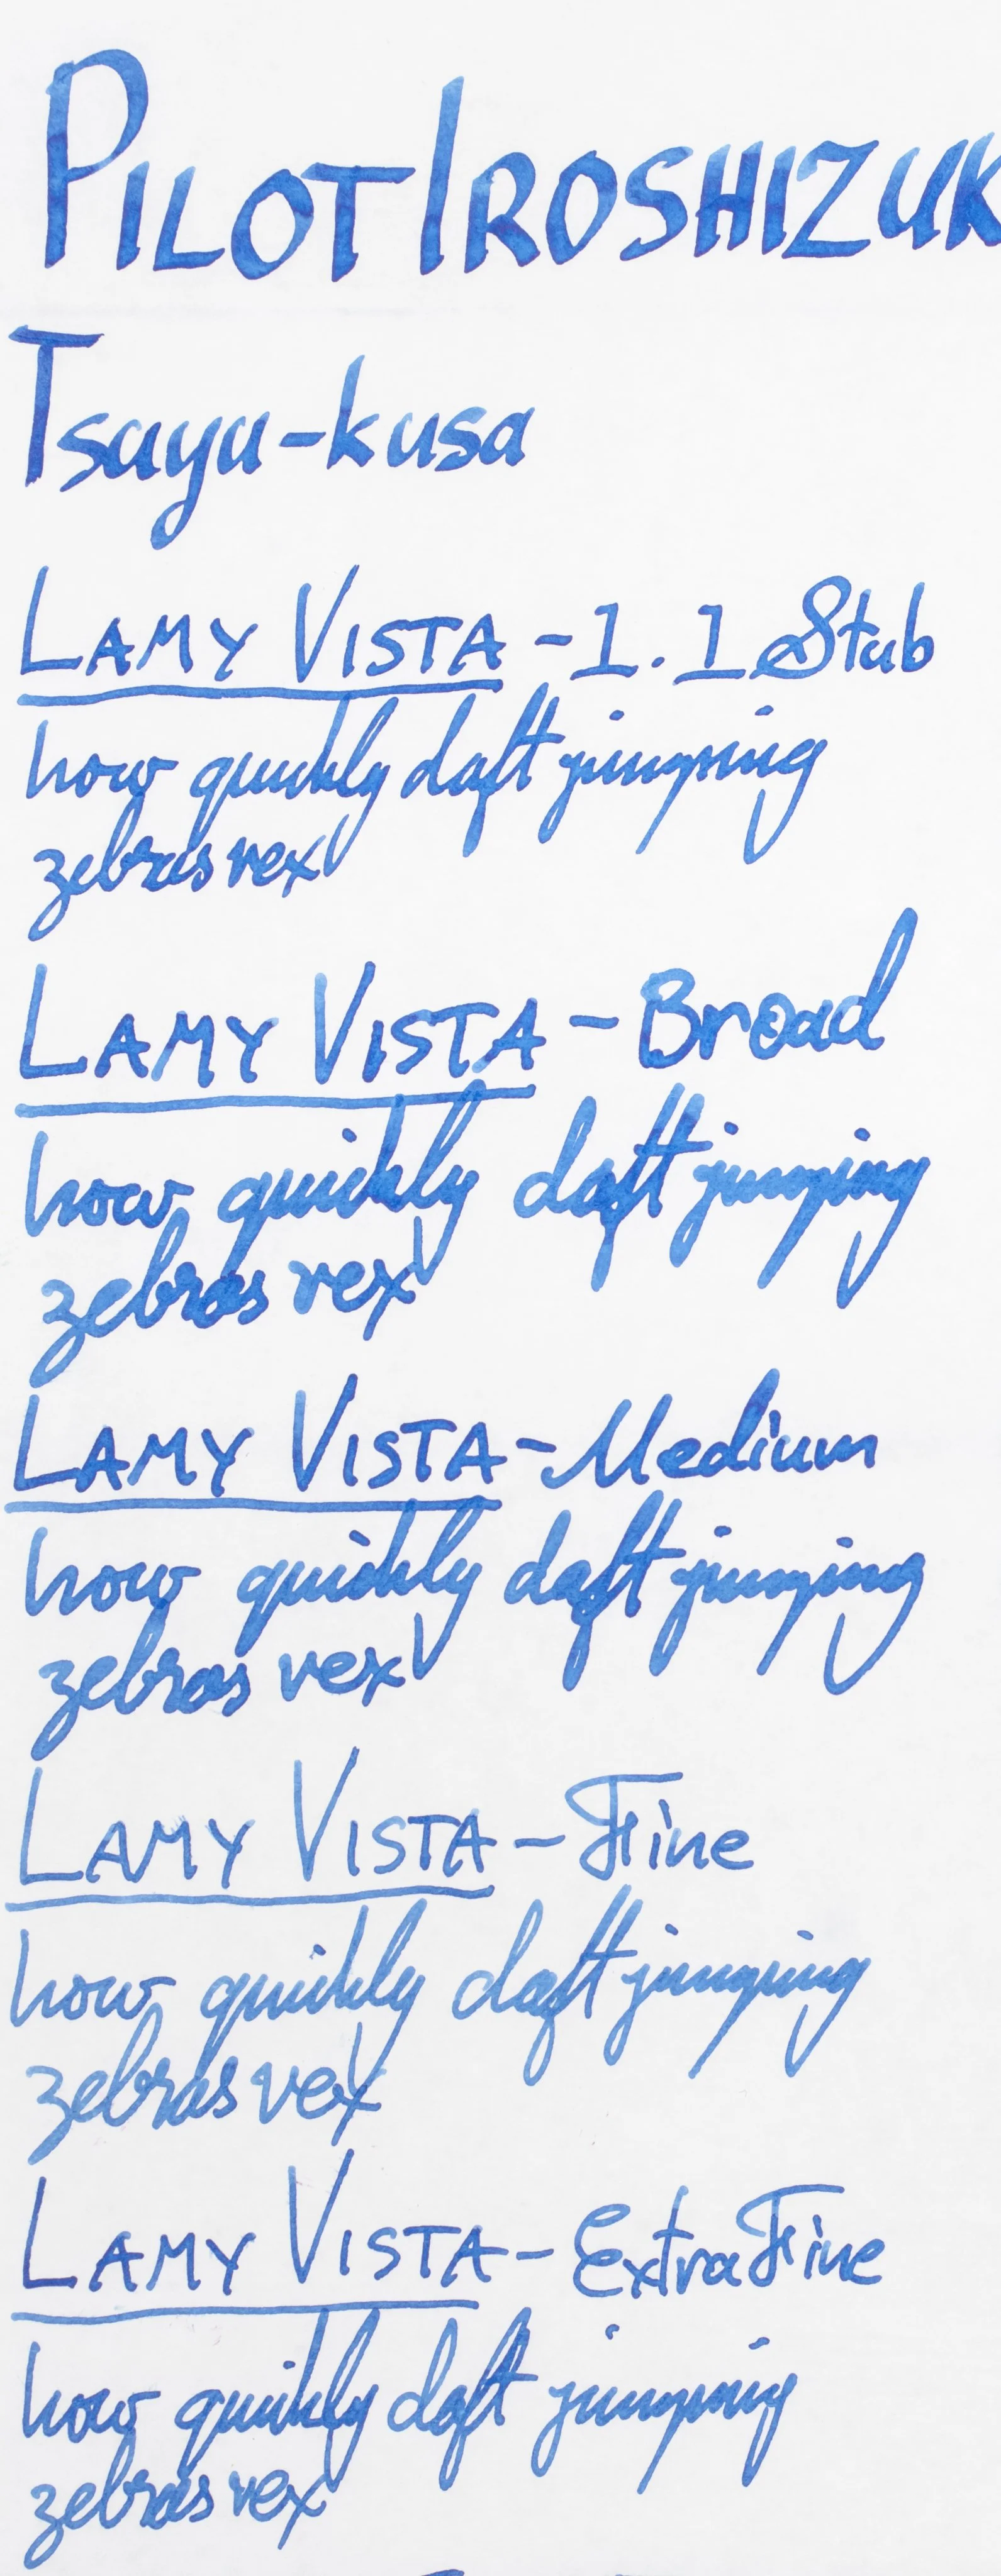 PILOT IROSHIZUK
Tsuyu-kusa
LAMY VISTA - 1.1 Stub
how quickly daft jumping
zebras vex
LAMY VISTA - Broad
how quickly daft jumping
zebras vex
LAMY VISTA - Medium
how quickly daft jumping
zebras vex
LAMY VISTA - Fine
how quickly daft jumping
zebras vex
LAMY VISTA - Extra Fine
how quickly daft jumping
zebras vex